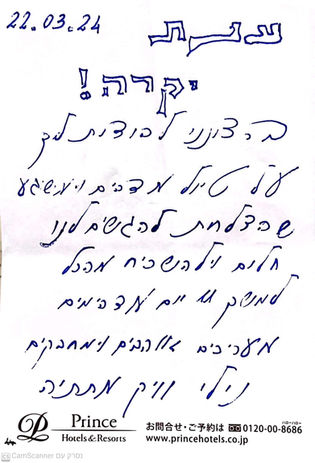 22.03.24
ענת
יקרה!
ברצוננו להודות לך
על טיול מדהים ומשגע
שהצלחת להגשים לנו
חלום ולהשכיח מהכל
למשך 11 יום מדהימים
מעריכים אוהבים ומחבקים
נילי וויק מתתיה
Prince
Hotels & Resorts
お問合せ・ご予約は 0120-00-8686
www.princehotels.co.jp
CamScanner נסרק עם